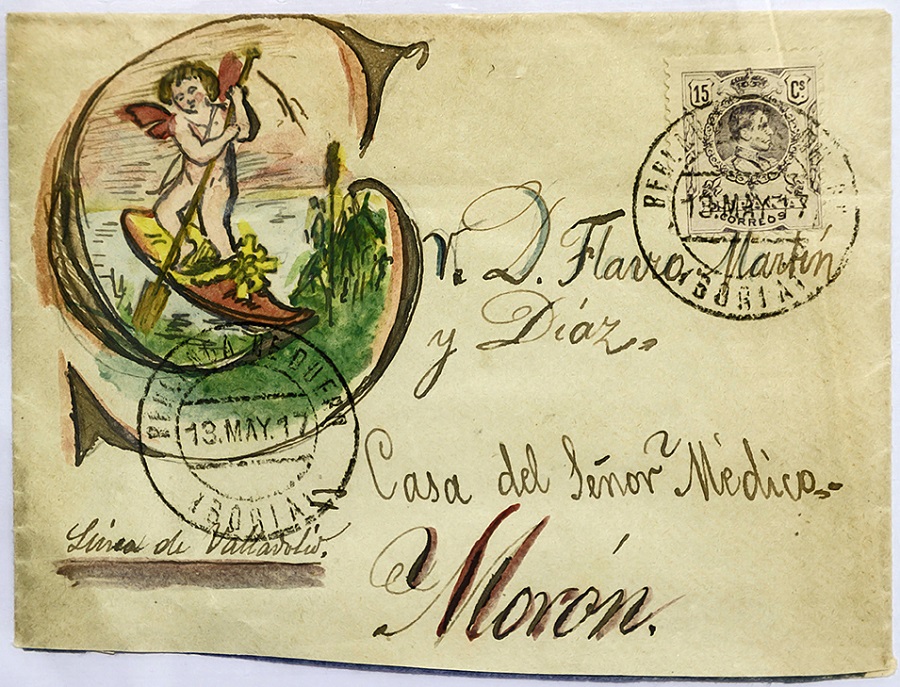 15 Cs.
CORREOS
13.MAY.17
(SORIA)
Sr. D. Flavio Martín
y Díaz.
BERLANGA DE DUERO
13.MAY.17
(SORIA)
Casa del Señor Médico.
Línea de Valladolid.
Morón.